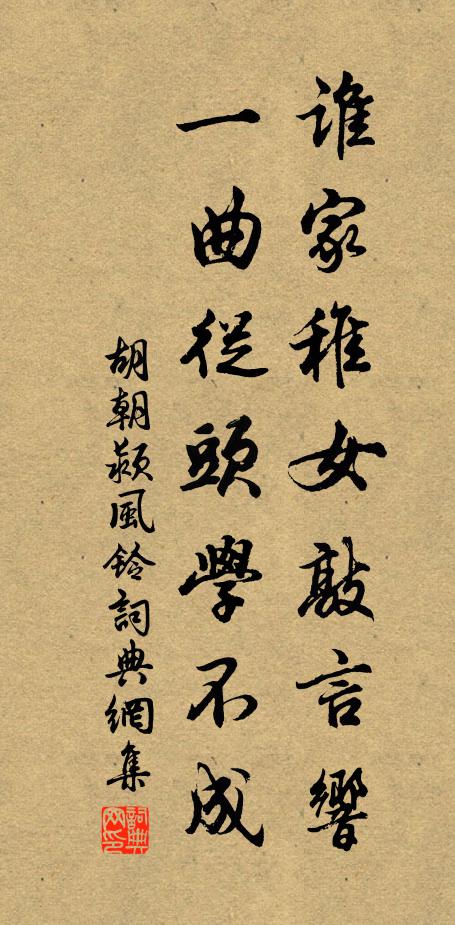 誰家稚女敲言響
一曲從頭學不成
胡朝颍風鈴詞典網集
詞典网印